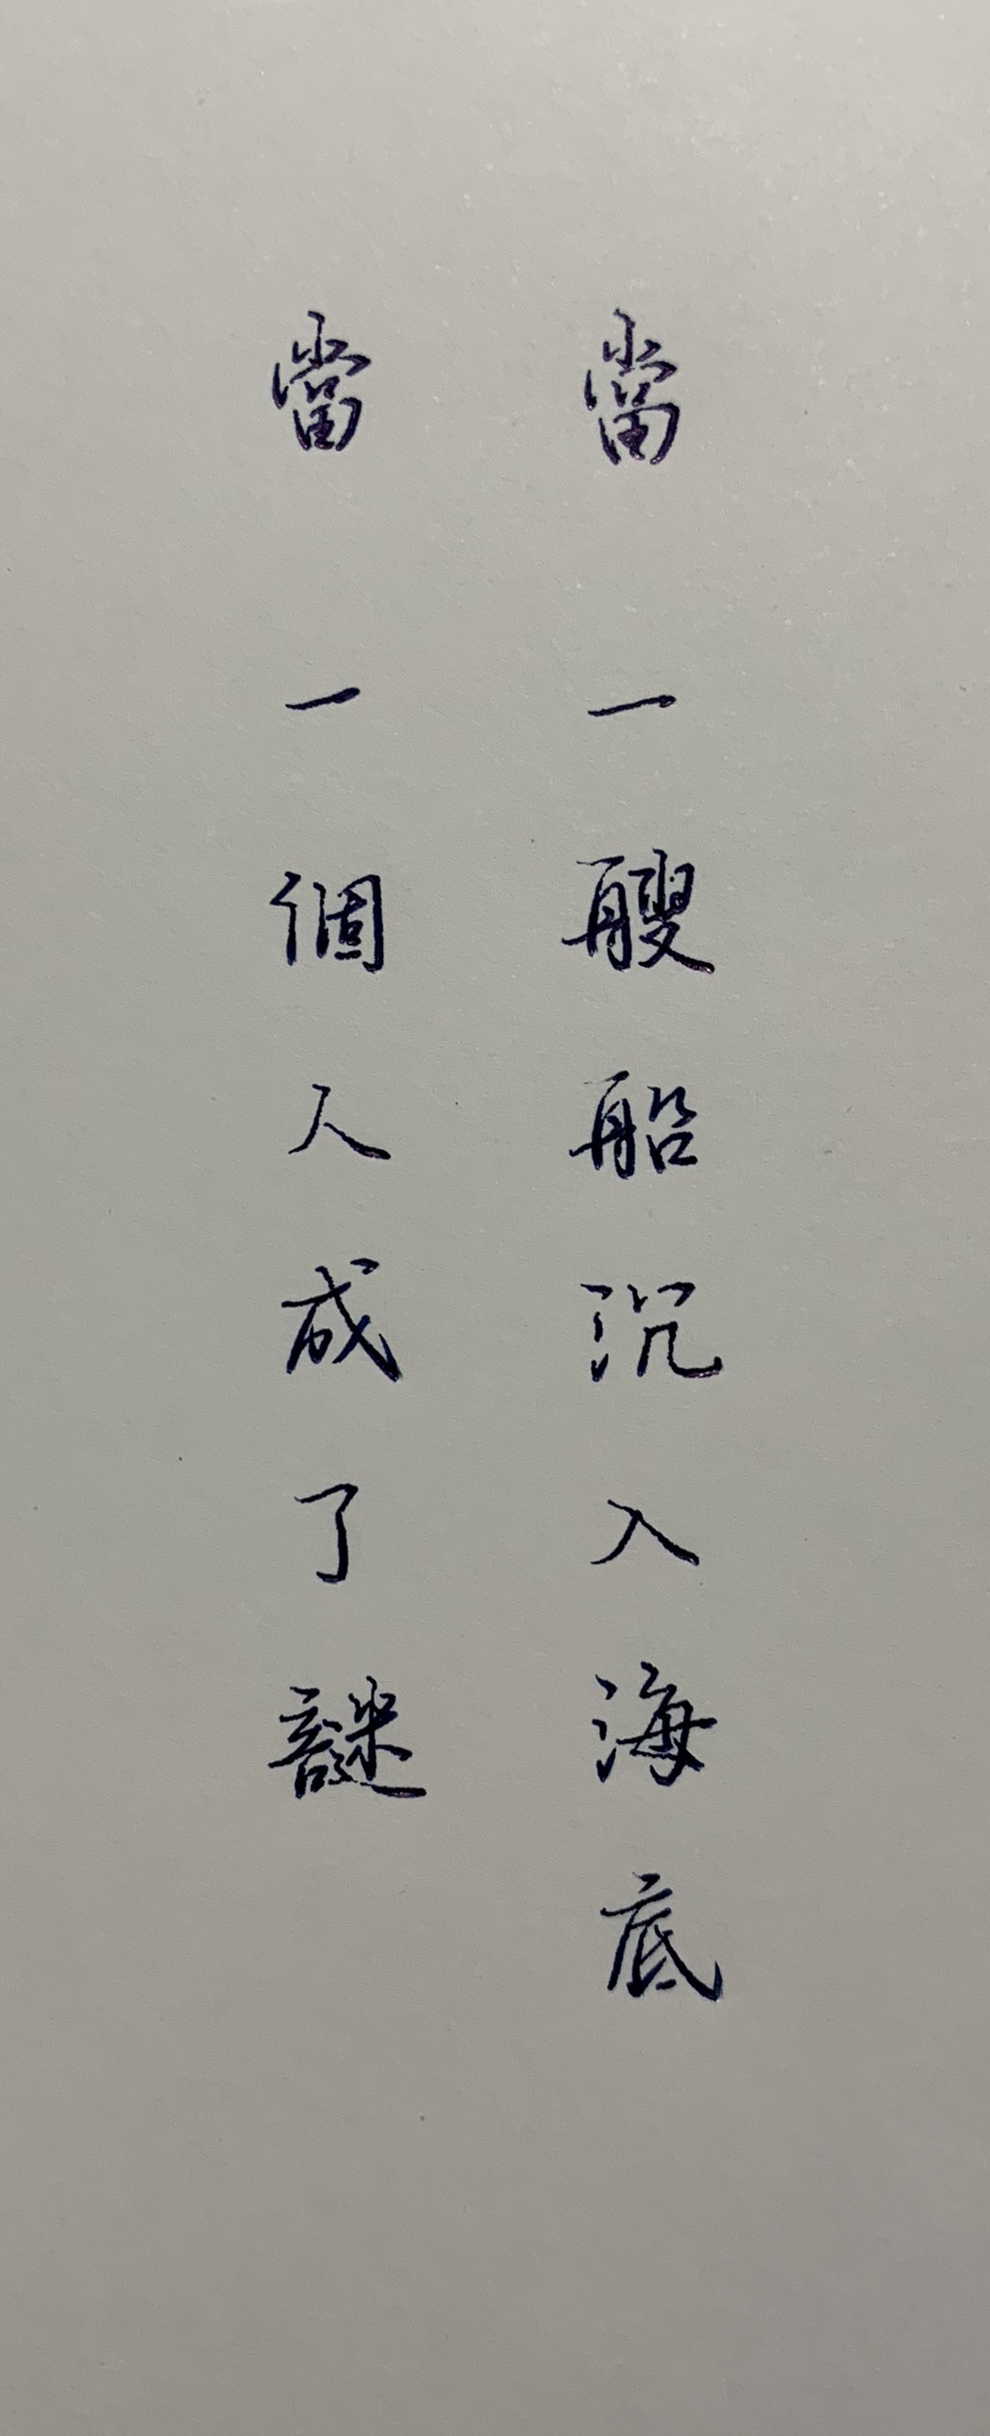 當一艘船沉入海底
當一個人成了謎